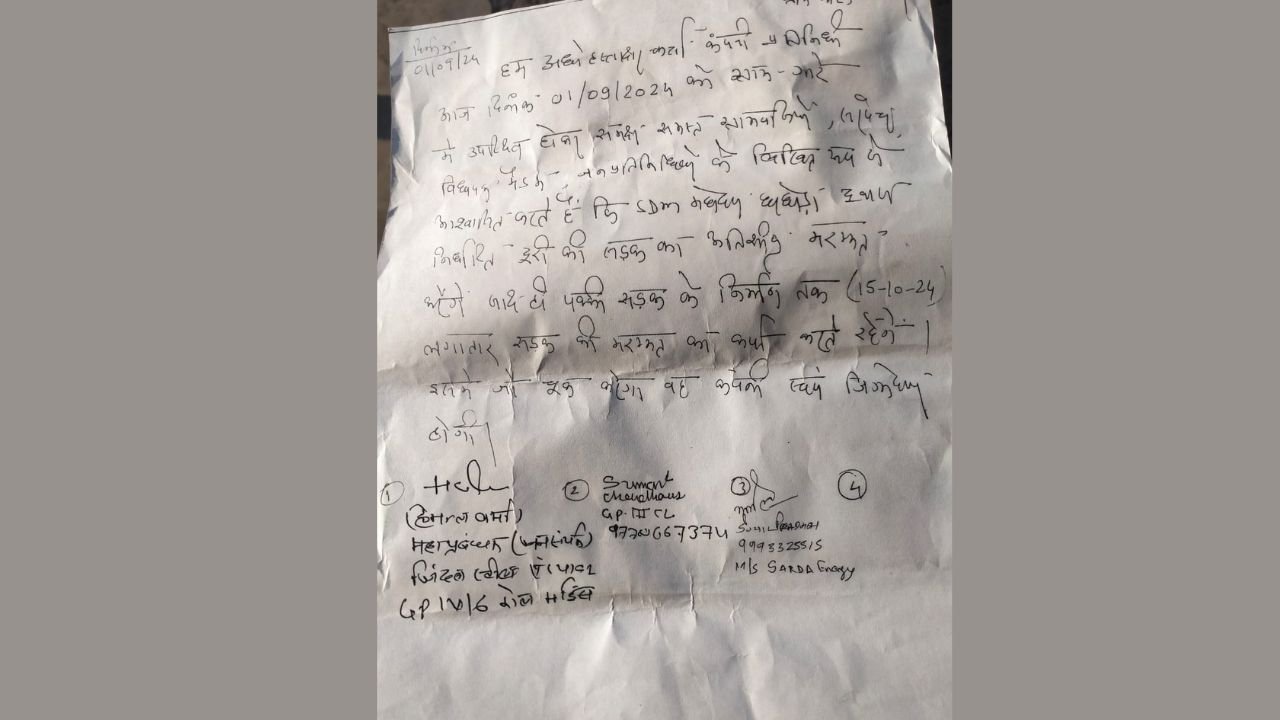 दिनांक
01/09/24
हम अधोहस्ताक्षर कर्ता कंपनी प्रतिनिधी
आज दिनांक 01/09/2024 को ग्राम-गारे
मे उपस्थित होकर समक्ष समस्त ग्रामवासियों, सरपंच,
विधायक मैडम, जनप्रतिनिधियों को लिखित रूप से
आश्वासित करते है कि SDM महोदय घरघोड़ा द्वारा
निर्धारित दूरी की सड़क का अतिशीघ्र मरम्मत
करेंगे साथ ही पक्की सड़क के निर्माण तक (15-10-24)
लगातार सड़क की मरम्मत का कार्य करते रहेंगे।
इसमे जो चूक करेगा वह कंपनी स्वयं जिम्मेदार
होगी।
① (हेमन्त वर्मा)
महाप्रबंधक
जिंदल स्टील एंड पावर
GP IV/6 कोल माइंस
② Sumant
Choudhary
GP-III CL
③
9993325515
M/S SARDA Energy
④